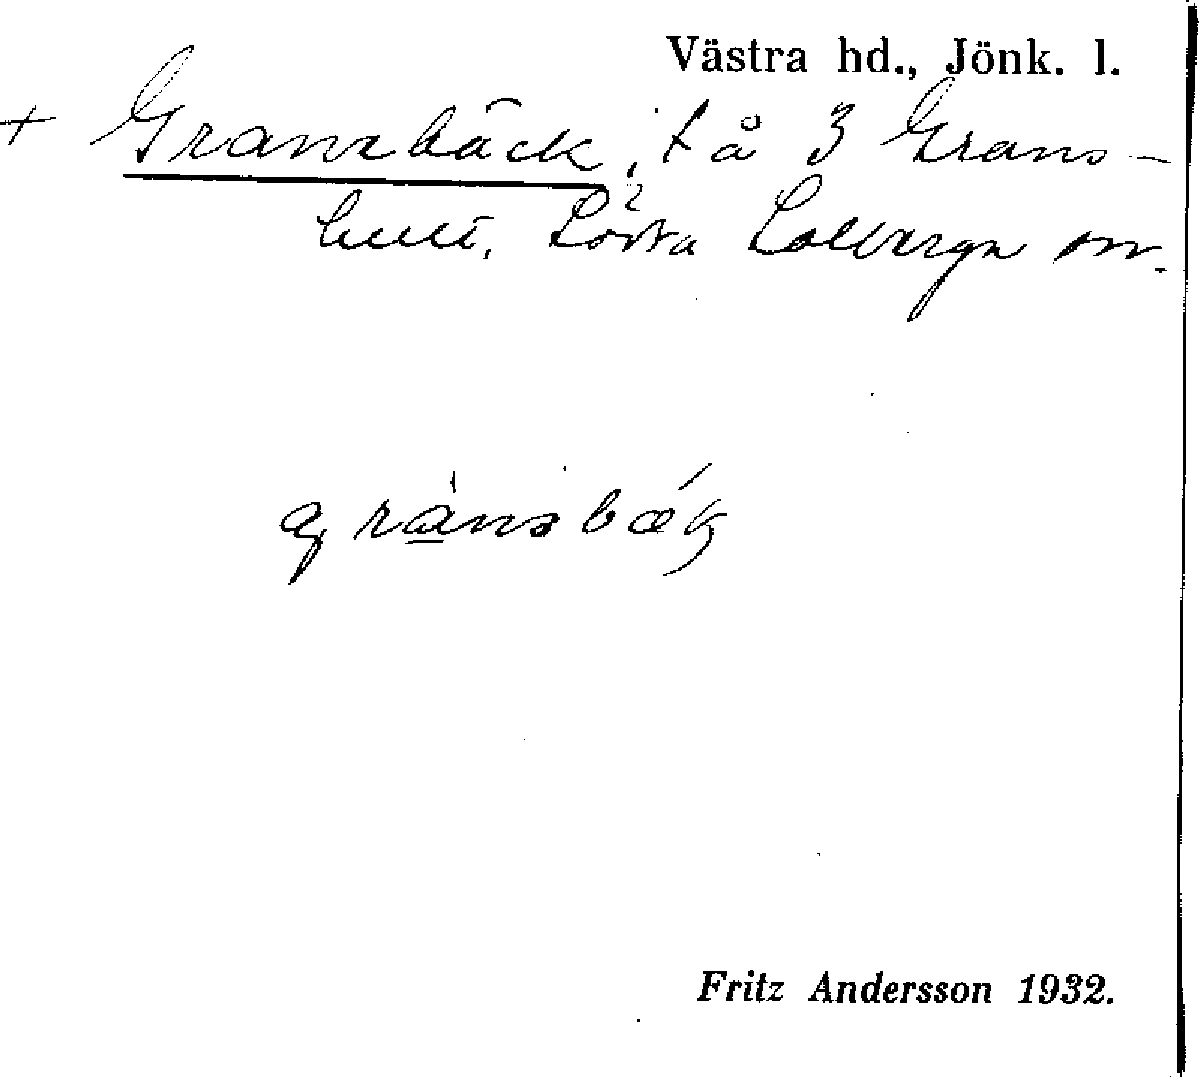 Västra hd., Jönk. l.
+ Gransbäck, tå 3 Grans-
hult, Södra Solberga sn.
gránsbæk
Fritz Andersson 1932.